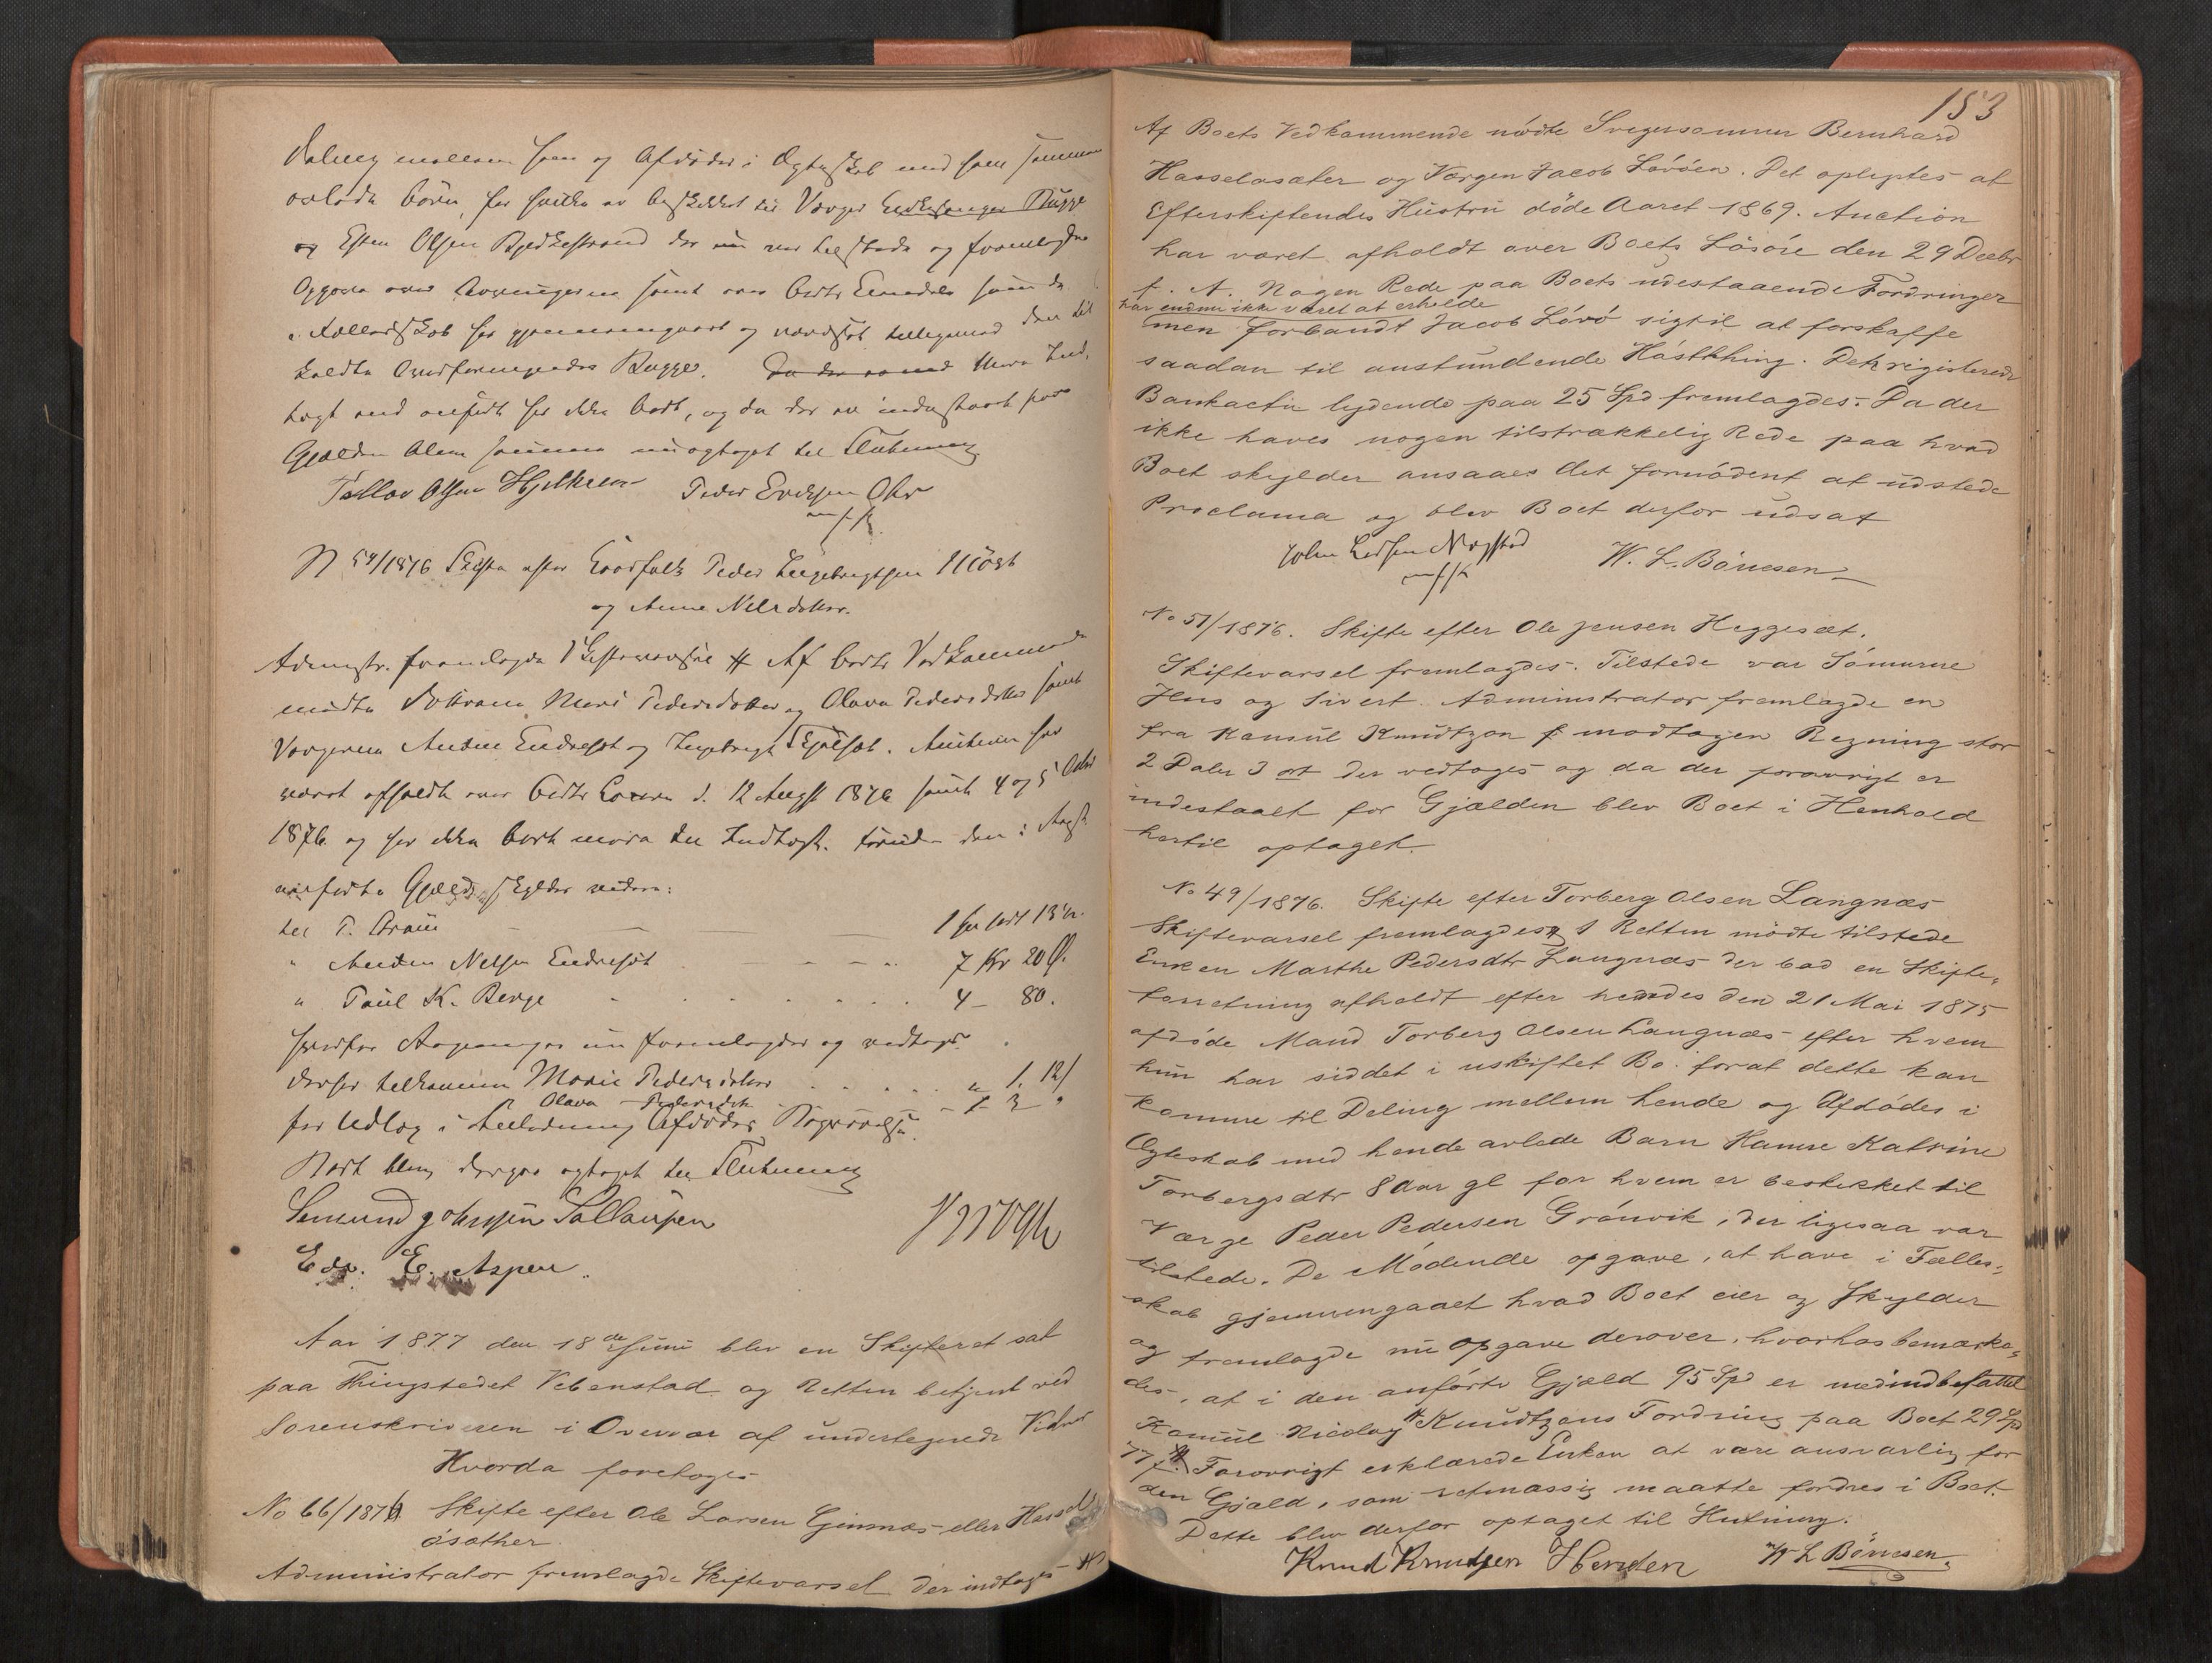 Deling mellem ham og Afdødes i Ægteskab med ham sammen
avlede børn, for hvilke er beskikket til Værger Endre Bugge
og Esten Olsen Bjerkestrand der nu var tilstede og fremlagde
Opgave over Arvingerne samt over boets Eiendele som de
i Fællesskab har gjennemgaaet og værdsat tilligemed den til
kaldte Bugge. Da der er med Mere Ind,
tægt end anført har ikke boet, og da der er indestaaet for
Gjælden blev samme nu optaget til Slutning
Tollev Olsen Hjelkrem Peder Ericksen Ohr
m f P
N 54/1876 Skifte efter Peder Ingebrigtsen Möst
og Anne Nilsdatter.
Admstr. fremlagde Skiftevarsel # Af boets Vedkommende
mødte Døttrene Mari Pedersdatter og Olava Pedersdatter samt
Værgerne Anden Endresæt og Ingebrigt. Auktion har
været afholdt over boets Løsøre d. 12 August 1876 samt 4 og 5 Octbr
1876 og har ikke boet mere til Indtægt. foruden den i Aug
anførte Gjæld skylder videre:
til P. 1 13
" Anden Nilsen Endresæt 7 Kr 20 Ø.
" Poul K. Berge 4 - 80.
hvorfor Regninger nu fremlagdes og vedtoges.
derhos tilkommer Marie Pedersdatter " 1. 12/
Olava Pedersdtr - 1 - 3 "
for Udlæg i Anledning Afdødes Begravelse.
Boet blev derpaa optaget til Slutning
Semund Johnsen Sollausen
Edv. E. Aspen.
Aar 1877 den 18de Juni blev en Skifteret sat
paa Thingstedet Vebenstad og Retten betjent ved
Sorenskriveren i Overvær af undertegnede Vidner
Hvorda foretoges
No 66/1876 Skifte efter Ole Larsen Gimnæs eller Hassel
øsæther.
Administrator fremlagde Skiftevarsel der indtages #
153
Af Boets Vedkommende mødte Svigersønner Bernhard
Hasseløsæter og Værgen Jacob Lørøen. Det oplystes at
Efterskiftendes Hustru døde Aaret 1869. Auction
har været afholdt over Boets Løsøre den 29 Decbr
f. A. Nogen Rede paa Boets udestaaende Fordringer
har endnu ikke været at erholde
men forbandt Jacob Lørø sig til at forskaffe
saadan til anstundende Høstthing. Det registerede
Bankactie lydende paa 25 Spd fremlagdes. Da der
ikke haves nogen tilstrækkelig Rede paa hvad
Boet skylder ansaaes det fornødent at udstede
Proclama og blev Boet derfor udsat
John Larsen Nogstad W. L. Børresen
m f P
No 51/1876. Skifte efter Ole Jensen Heggeset.
Skiftevarsel fremlagdes. Tilstede var Sønnerne
Jens og Sivert. Administrator fremlagde en
fra Konsul Knudtzon f modtagen Regning stor
2 Daler 3 ort der vedtages og da der forøvrigt er
indestaaet for Gjælden blev Boet i Henhold
hertil optaget.
No 49/1876. Skifte efter Torberg Olsen Langnæs
Skiftevarsel fremlagdes # I Retten mødte tilstede
Enken Marthe Pedersdtr Langnæs der bad en Skifte,
forretning afholdt efter hendes den 21 Mai 1875
afdøde Mand Torberg Olsen Langnæs efter hvem
hun har siddet i uskiftet Bo. forat dette kan
komme til Deling mellem hende og Afdødes i
Ægteskab med hende avlede Barn Hanne Katrine
Torbergsdtr 8 Aar gl for hvem er beskikket til
Værge Peder Pedersen Grønvik, der ligesaa var
tilstede. De Mødende opgave, at have i Fælles,
skab gjennemgaaet hvad Boet eier og skylder
og fremlagde nu Opgave derover, hvorhos bemærke,
des, at i den anførte Gjæld 95 Spd er medindbefattet
Konsul Nicolay H Knudtzons Fordring paa Boet 29 Spd
77 ß. # Forøvrigt erklærede Enken at være ansvarlig for
den Gjæld, som retmæssig maatte fordres i Boet.
Dette blev derfor optaget til Slutning.
Knud Knudsen Henden W L Børresen.